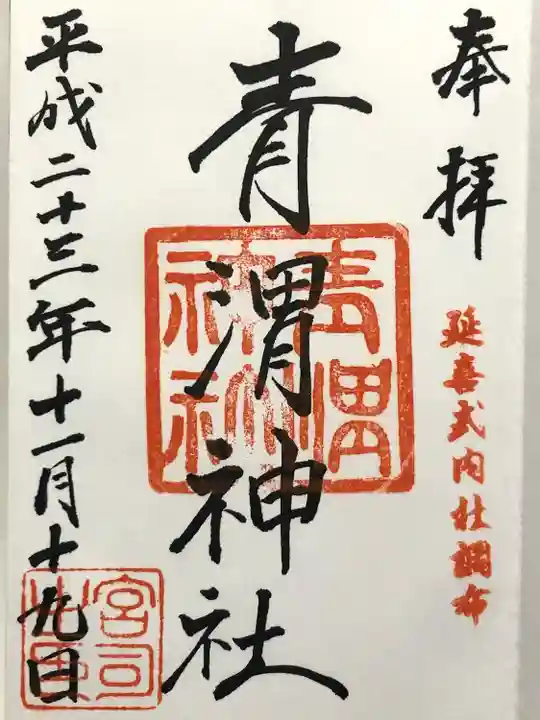 奉拝
延喜式内社調布
青渭神社
青渭神社
平成二十三年十一月十九日
宮司之印